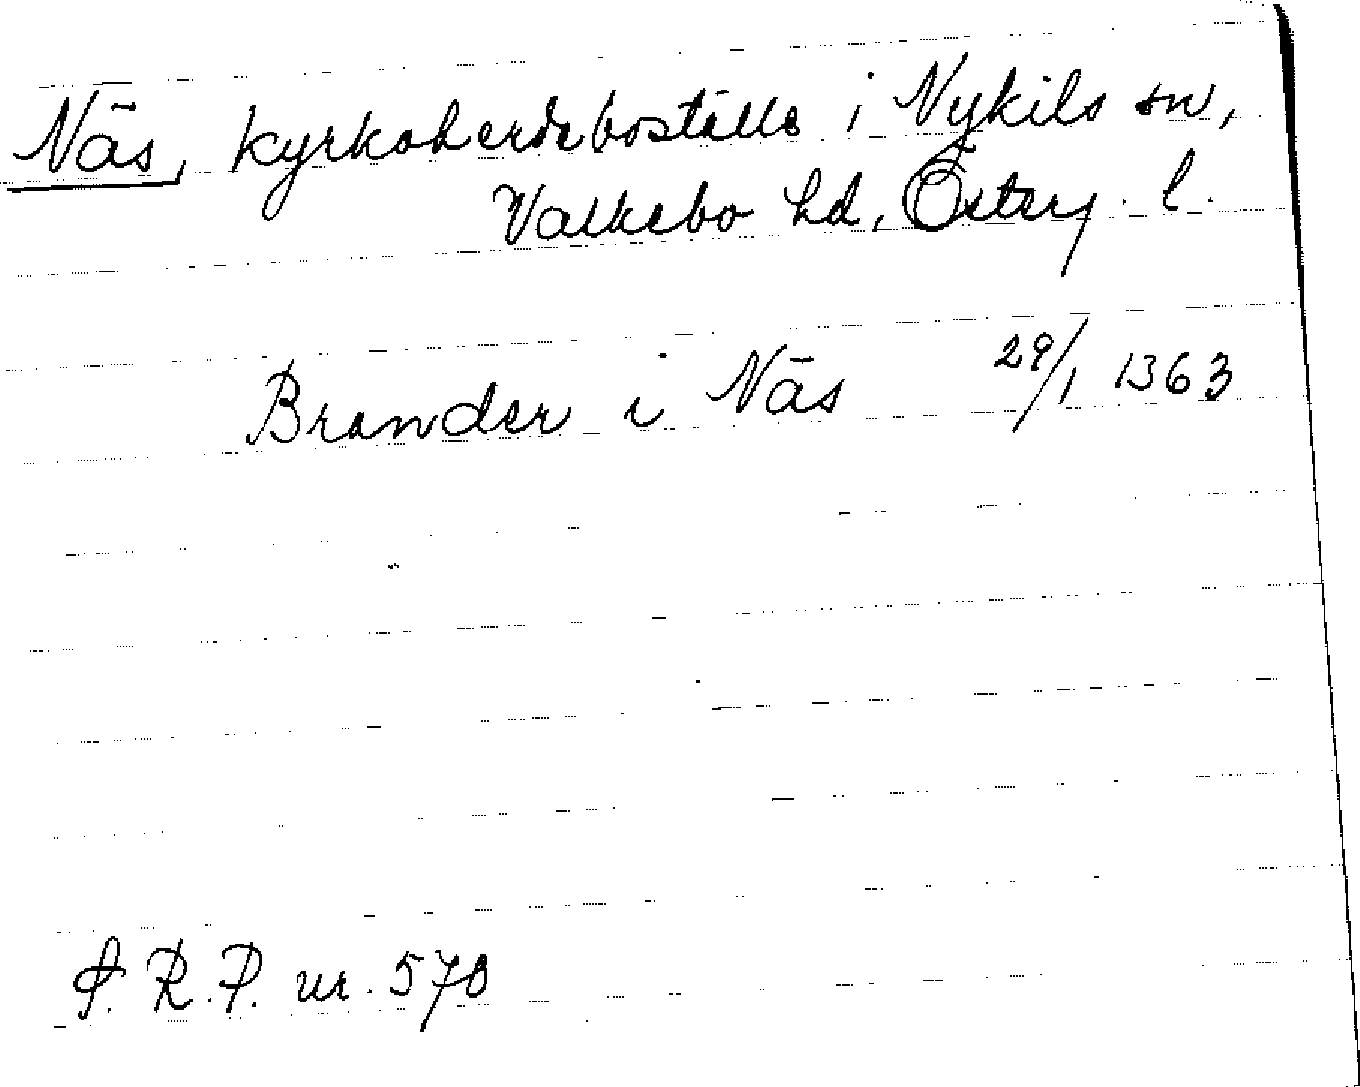 Näs, kyrkoherdeboställe i Nykils sn,
Valkebo hd, Österg. l.
Brander i Näs 29/1 1363
S. R. P. nr. 570